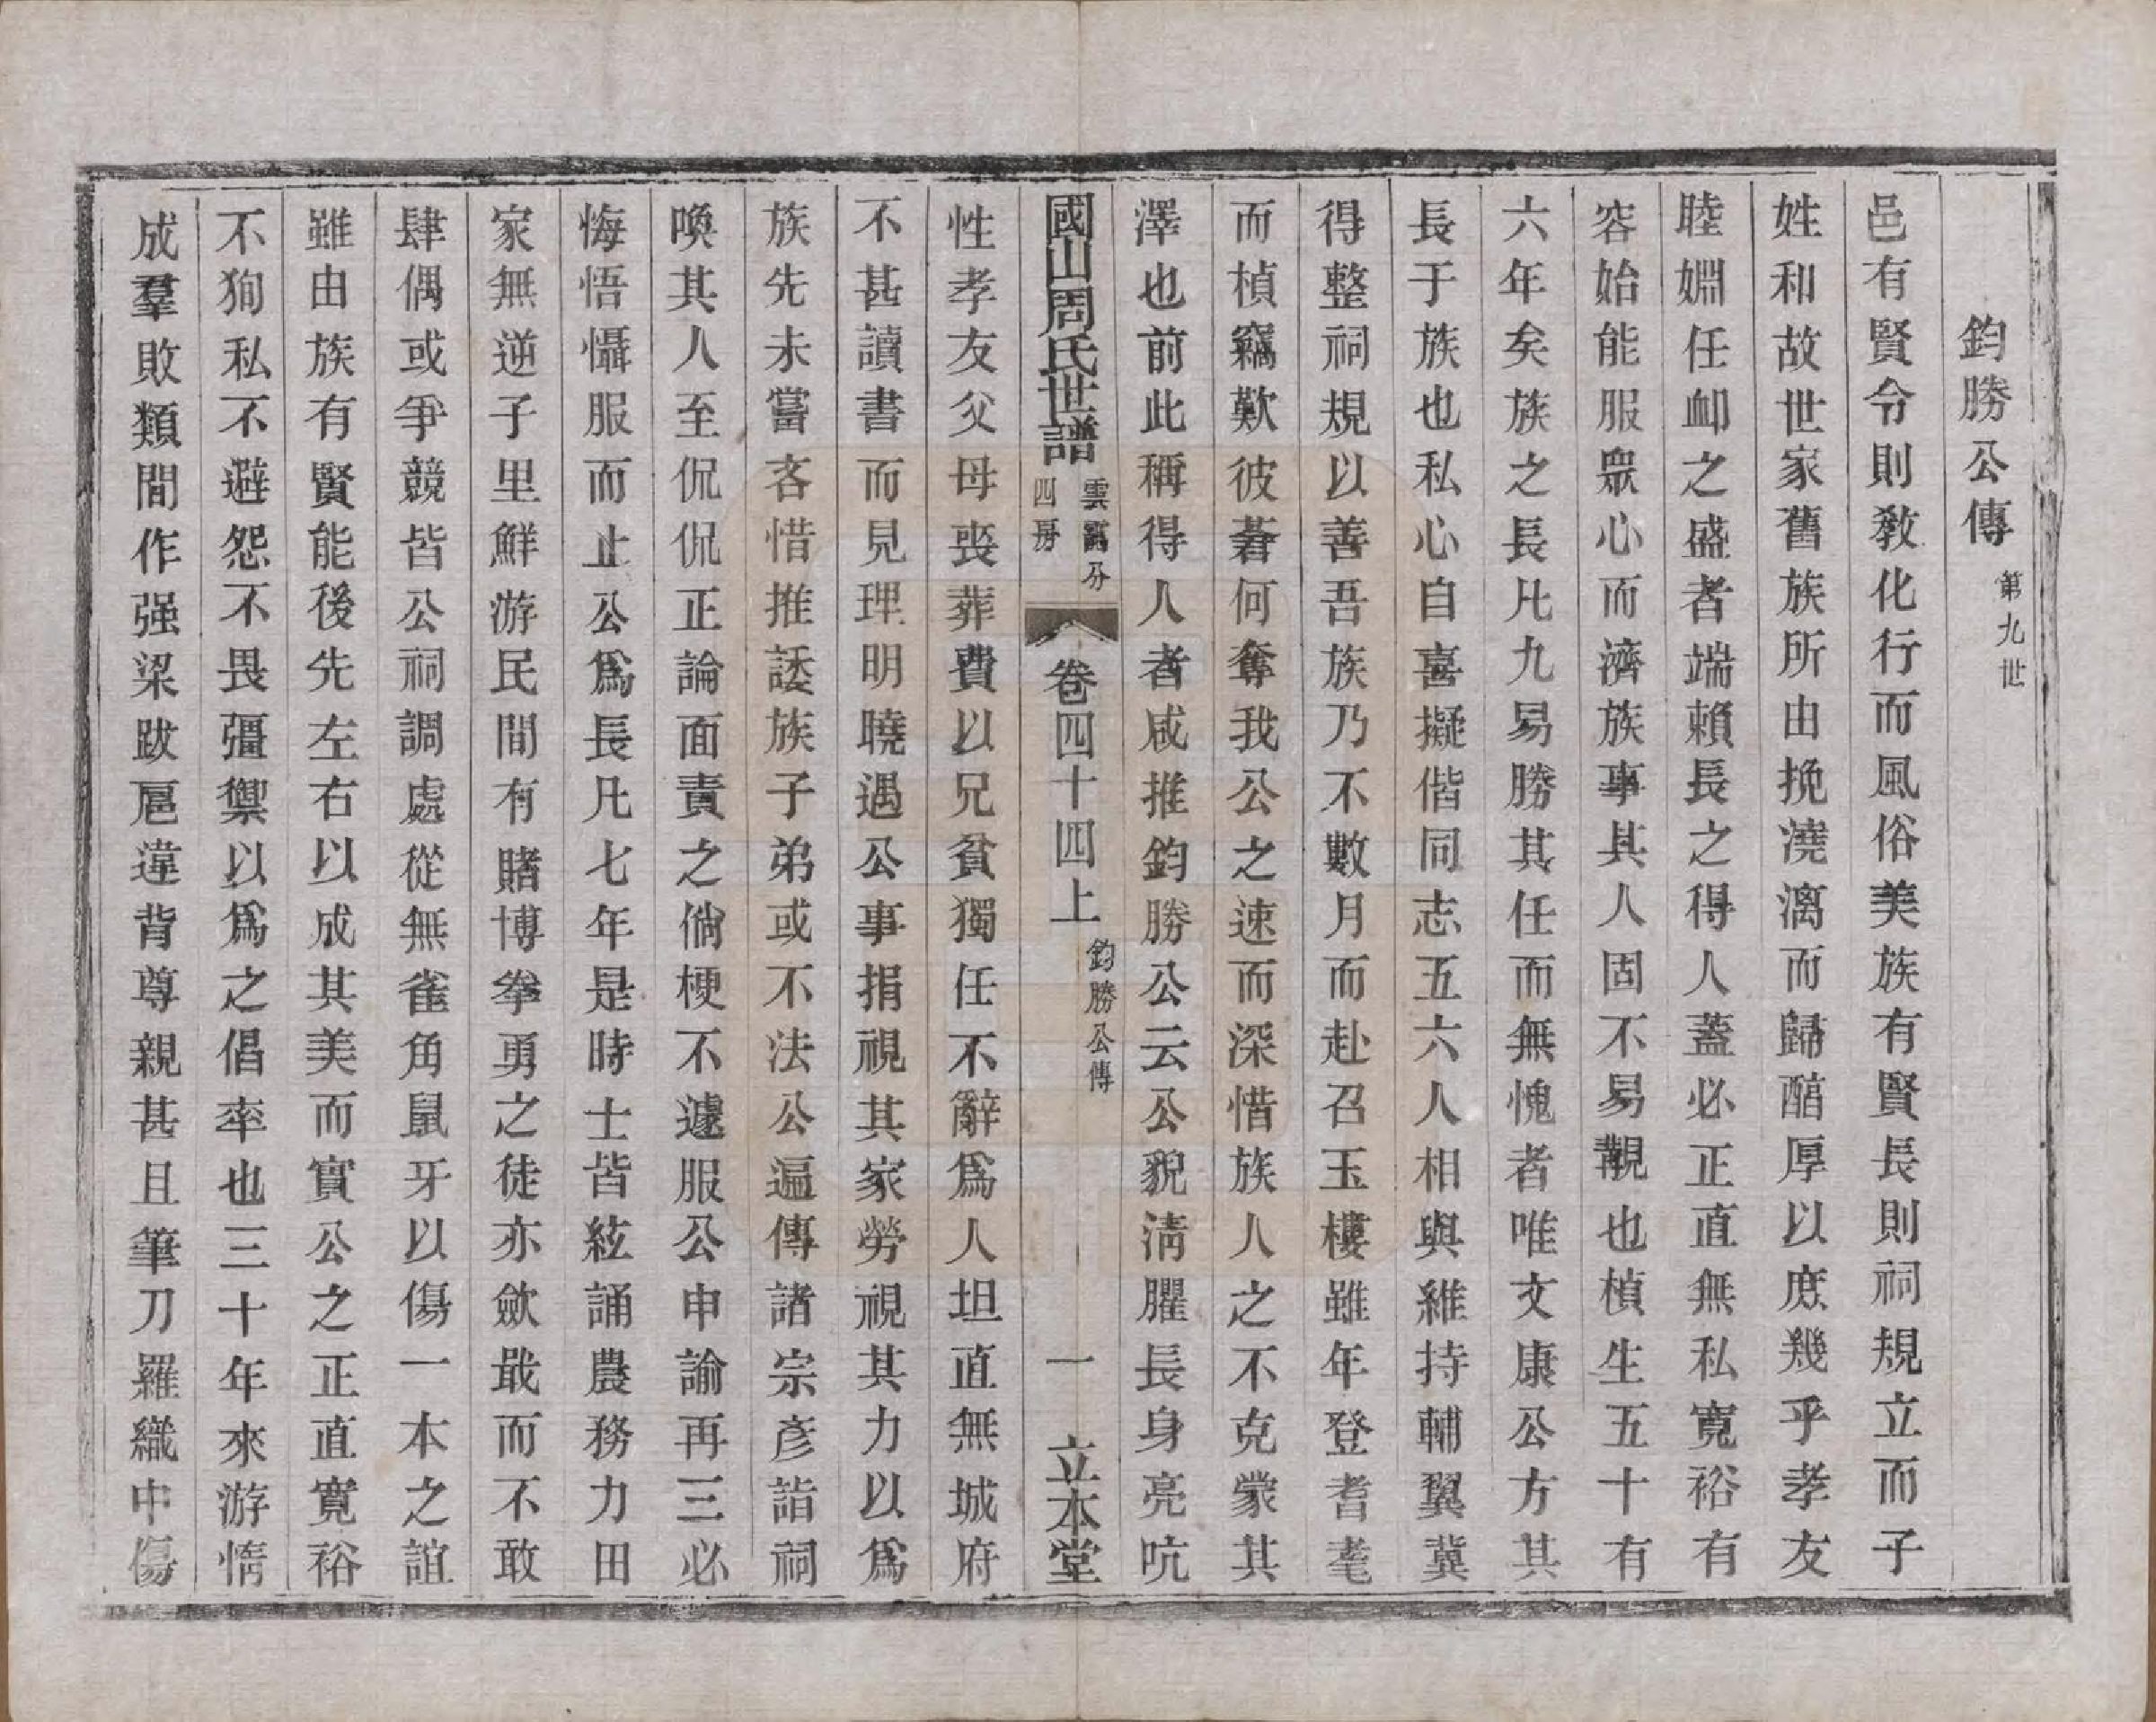 鈞勝公傳 第九世
邑有賢令則敎化行而風俗美族有賢長則祠規立而子
姓和故世家舊族所由挽澆漓而歸醕厚以庶幾乎孝友
睦婣任卹之盛者端賴長之得人蓋必正直無私寬裕有
容始能服眾心而濟族事其人固不易覯也楨生五十有
六年矣族之長凡九易勝其任而無愧者唯文康公方其
長于族也私心自喜擬偕同志五六人相與維持輔翼冀
得整祠規以善吾族乃不數月而赴召玉樓雖年登耆耄
而楨竊歎彼蒼何奪我公之速而深惜族人之不克蒙其
澤也前此稱得人者咸推鈞勝公云公貌淸臞長身亮吭
國山周氏世譜 雲窩分四房 卷四十四上 鈞勝公傳 一 立本堂
性孝友父母喪葬費以兄貧獨任不辭爲人坦直無城府
不甚讀書而見理明曉遇公事捐視其家勞視其力以爲
族先未嘗吝惜推諉族子弟或不法公遍傳諸宗彥詣祠
喚其人至侃侃正論面責之倘梗不遽服公申諭再三必
悔悟懾服而止公爲長凡七年是時士皆絃誦農務力田
家無逆子里鮮游民間有賭博拳勇之徒亦歛戢而不敢
肆偶或爭競皆公祠調處從無雀角鼠牙以傷一本之誼
雖由族有賢能後先左右以成其美而實公之正直寬裕
不狥私不避怨不畏彊禦以爲之倡率也三十年來游惰
成羣敗類間作强梁跋扈違背尊親甚且筆刀羅織中傷